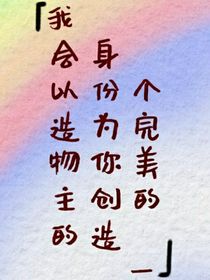 「我会以造物主的
身份为你创造一
个完美的」